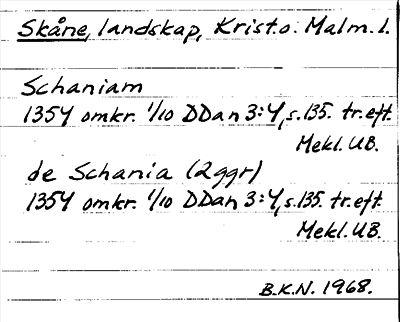 Skåne, landskap, Krist. o. Malm. l.
Schaniam
1354 omkr. 1/10 DDan 3:4, s. 135. tr. eft.
Mekl. UB.
de Schania (2 ggr)
1354 omkr. 1/10 DDan 3:4, s. 135. tr. eft.
Mekl. UB.
B.K.N. 1968.